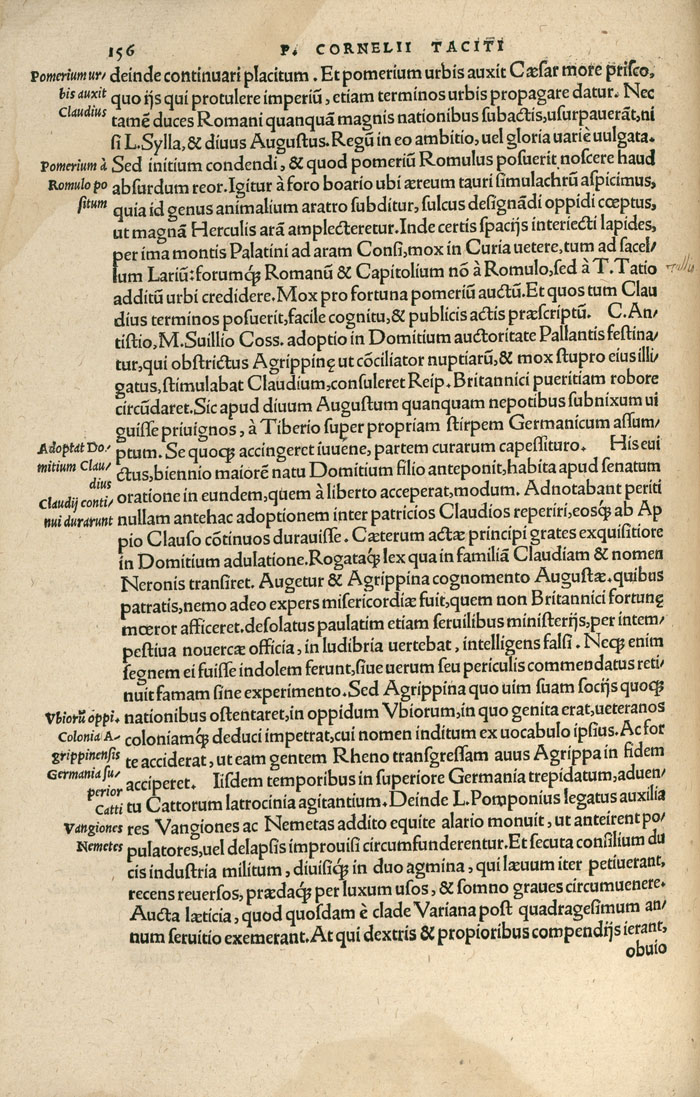 156 P. CORNELII TACITI
Pomerium ur/
bis auxit
Claudius
deinde continuari placitum. Et pomerium urbis auxit Cæsar more priſco,
quo ijs qui protulere imperiũ, etiam terminos urbis propagare datur. Nec
tamẽ duces Romani quanquã magnis nationibus ſubactis, uſurpauerãt, ni
ſi L. Sylla, & diuus Auguſtus. Regũ in eo ambitio, uel gloria uariè uulgata.
Pomerium à
Romulo po
ſitum
Sed initium condendi, & quod pomeriũ Romulus poſuerit noſcere haud
abſurdum reor. Igitur à foro boario ubi æreum tauri ſimulachrũ aſpicimus,
quia id genus animalium aratro ſubditur, ſulcus deſignãdi oppidi cœptus,
ut magnã Herculis arã amplecteretur. Inde certis ſpacijs interiecti lapides,
per ima montis Palatini ad aram Conſi, mox in Curia uetere, tum ad ſacel/
lum Lariũ: forumq́ꝫ Romanũ & Capitolium nõ à Romulo, ſed à T. Tatio
additũ urbi credidere. Mox pro fortuna pomeriũ auctũ. Et quos tum Clau
dius terminos poſuerit, facile cognitu, & publicis actis præſcriptũ. C. An/
tiſtio, M. Suillio Coss. adoptio in Domitium auctoritate Pallantis feſtina/
tur, qui obſtrictus Agrippinę ut cõciliator nuptiarũ, & mox ſtupro eius illi/
gatus, ſtimulabat Claudium, conſuleret Reip. Britannici pueritiam robore
circũdaret. Sic apud diuum Auguſtum quanquam nepotibus ſubnixum ui
guiſſe priuignos, à Tiberio ſuper propriam ſtirpem Germanicum aſſum/
Adoptat Do/
mitium Clau/
dius
Claudij conti/
nui durarunt
ptum. Se quoqꝫ accingeret iuuẽne, partem curarum capeſſituro. His eui
ctus, biennio maiorẽ natu Domitium filio anteponit, habita apud ſenatum
oratione in eundem, quem à liberto acceperat, modum. Adnotabant periti
nullam antehac adoptionem inter patricios Claudios reperiri, eosq́ꝫ ab Ap
pio Clauſo cõtinuos durauiſſe. Cæterum actæ principi grates exquiſitiore
in Domitium adulatione. Rogataq́ꝫ lex qua in familiã Claudiam & nomen
Neronis tranſiret. Augetur & Agrippina cognomento Auguſtæ. quibus
patratis, nemo adeo expers miſericordiæ fuit, quem non Britannici fortunę
mœror afficeret. deſolatus paulatim etiam ſeruilibus miniſterijs, per intem/
peſtiua nouercæ officia, in ludibria uertebat, intelligens falſi. Neqꝫ enim
ſegnem ei fuiſſe indolem ferunt, ſiue uerum ſeu periculis commendatus reti/
nuit famam ſine experimento. Sed Agrippina quo uim ſuam ſocijs quoqꝫ
Vbiorũ oppi.
Colonia A-
grippinenſis
Germania ſu/
perior
Catti
Vangiones
Nemetes
nationibus oſtentaret, in oppidum Vbiorum, in quo genita erat, ueteranos
coloniamq́ꝫ deduci impetrat, cui nomen inditum ex uocabulo ipſius. Ac for
te acciderat, ut eam gentem Rheno tranſgreſſam auus Agrippa in fidem
acciperet. Iiſdem temporibus in ſuperiore Germania trepidatum, aduen/
tu Cattorum latrocinia agitantium. Deinde L. Pomponius legatus auxilia
res Vangiones ac Nemetas addito equite alario monuit, ut anteirent po/
pulatores, uel delapſis improuiſi circumfunderentur. Et ſecuta conſilium du
cis induſtria militum, diuiſiq́ꝫ in duo agmina, qui læuum iter petiuerant,
recens reuerſos, prædaq́ꝫ per luxum uſos, & ſomno graues circumuenere.
Aucta læticia, quod quoſdam è clade Variana poſt quadrageſimum an/
num ſeruitio exemerant. At qui dextris & propioribus compendijs ierant,
obuio